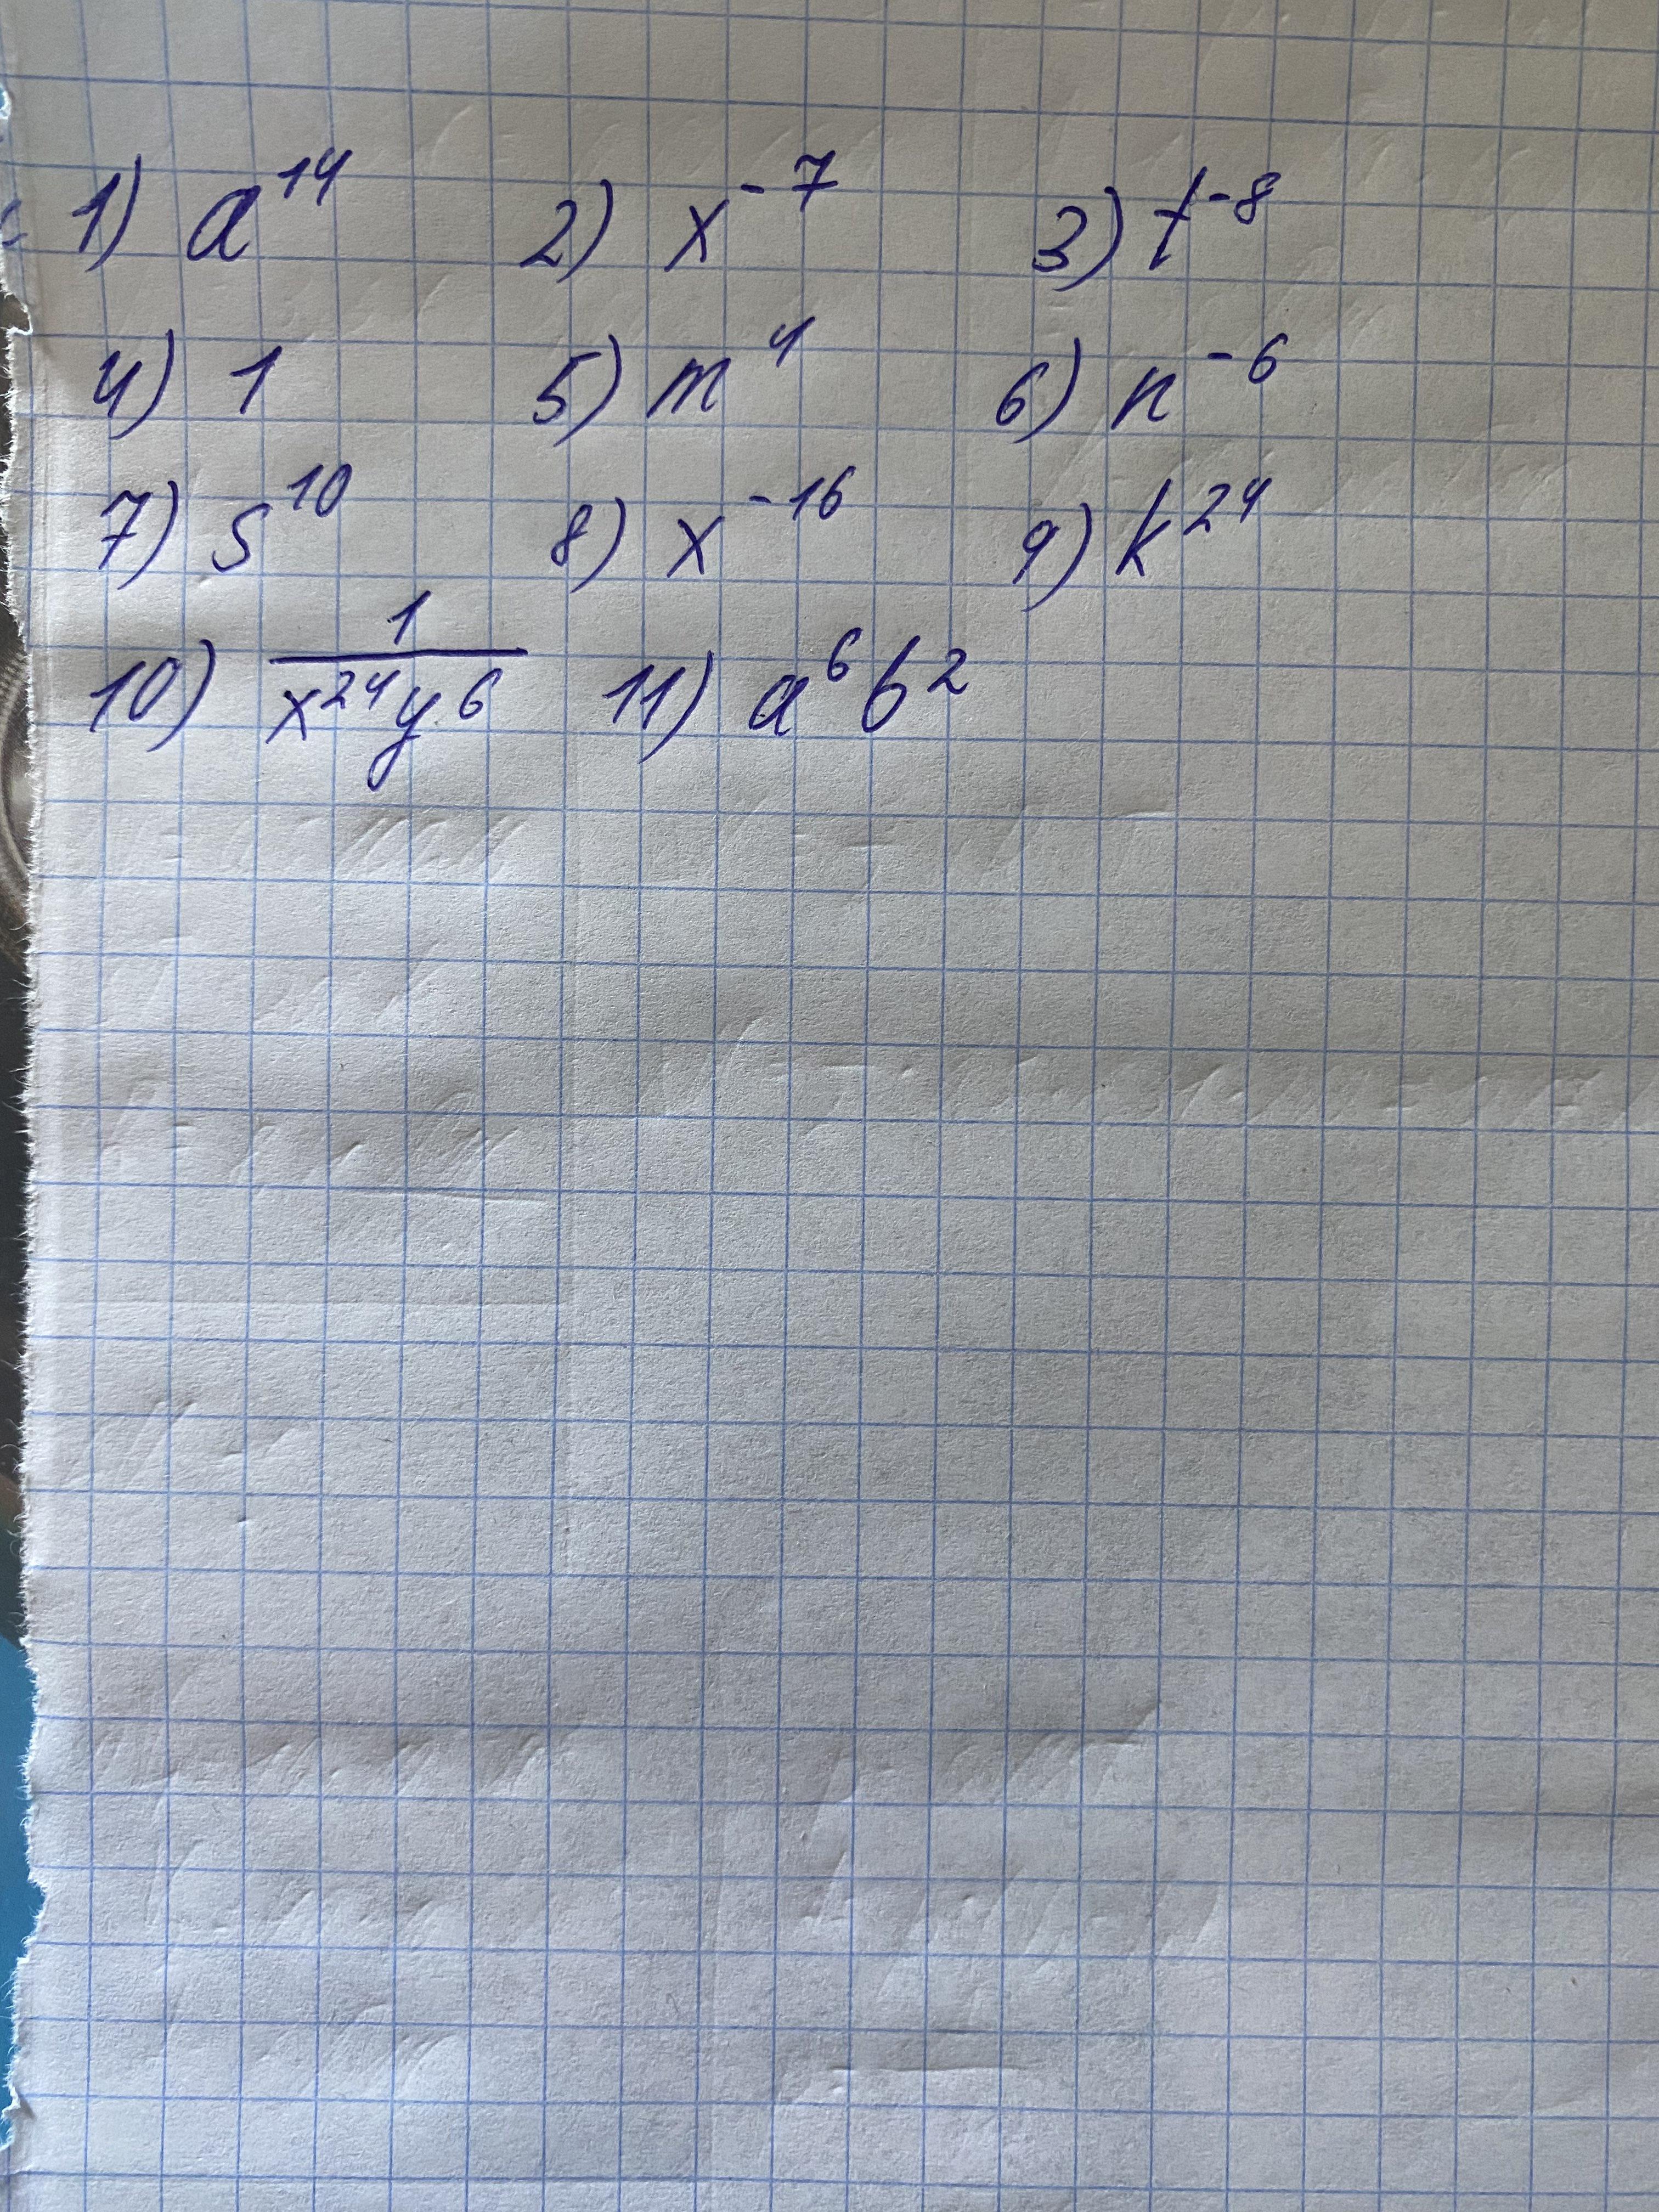 1) a^14 2) x^-7 3) t^-8
4) 1 5) m^4 6) n^-6
7) s^10 8) x^-16 9) k^24
10) 1/(x^24 y^6) 11) a^6 b^2